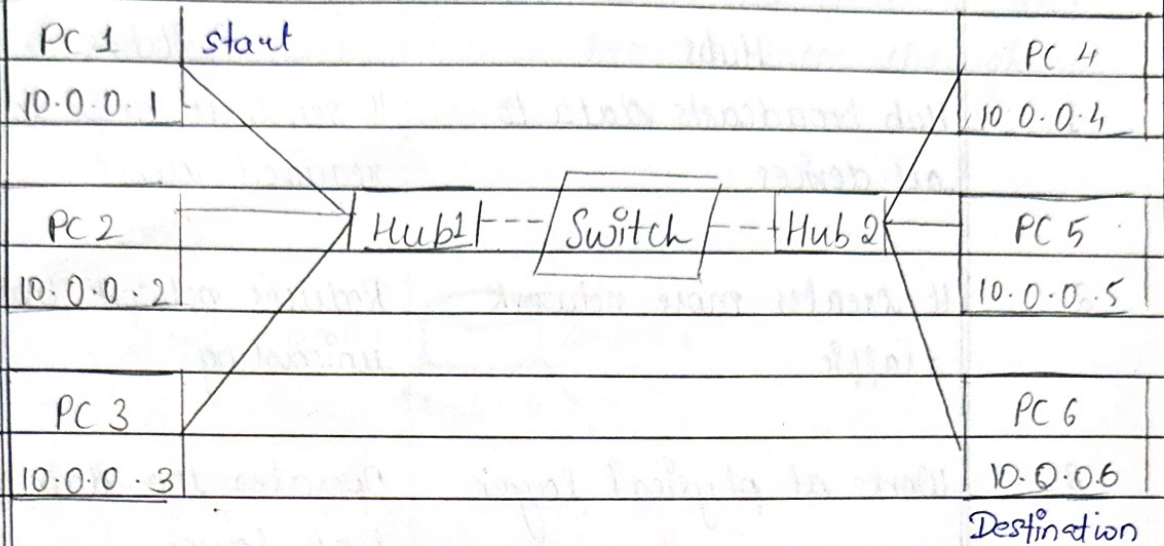 PC 1 start
10.0.0.1
PC 2
10.0.0.2
PC 3
10.0.0.3
Hub1
Switch
Hub 2
PC 4
10 0.0.4
PC 5
10.0.0.5
PC 6
10.0.06
Destination